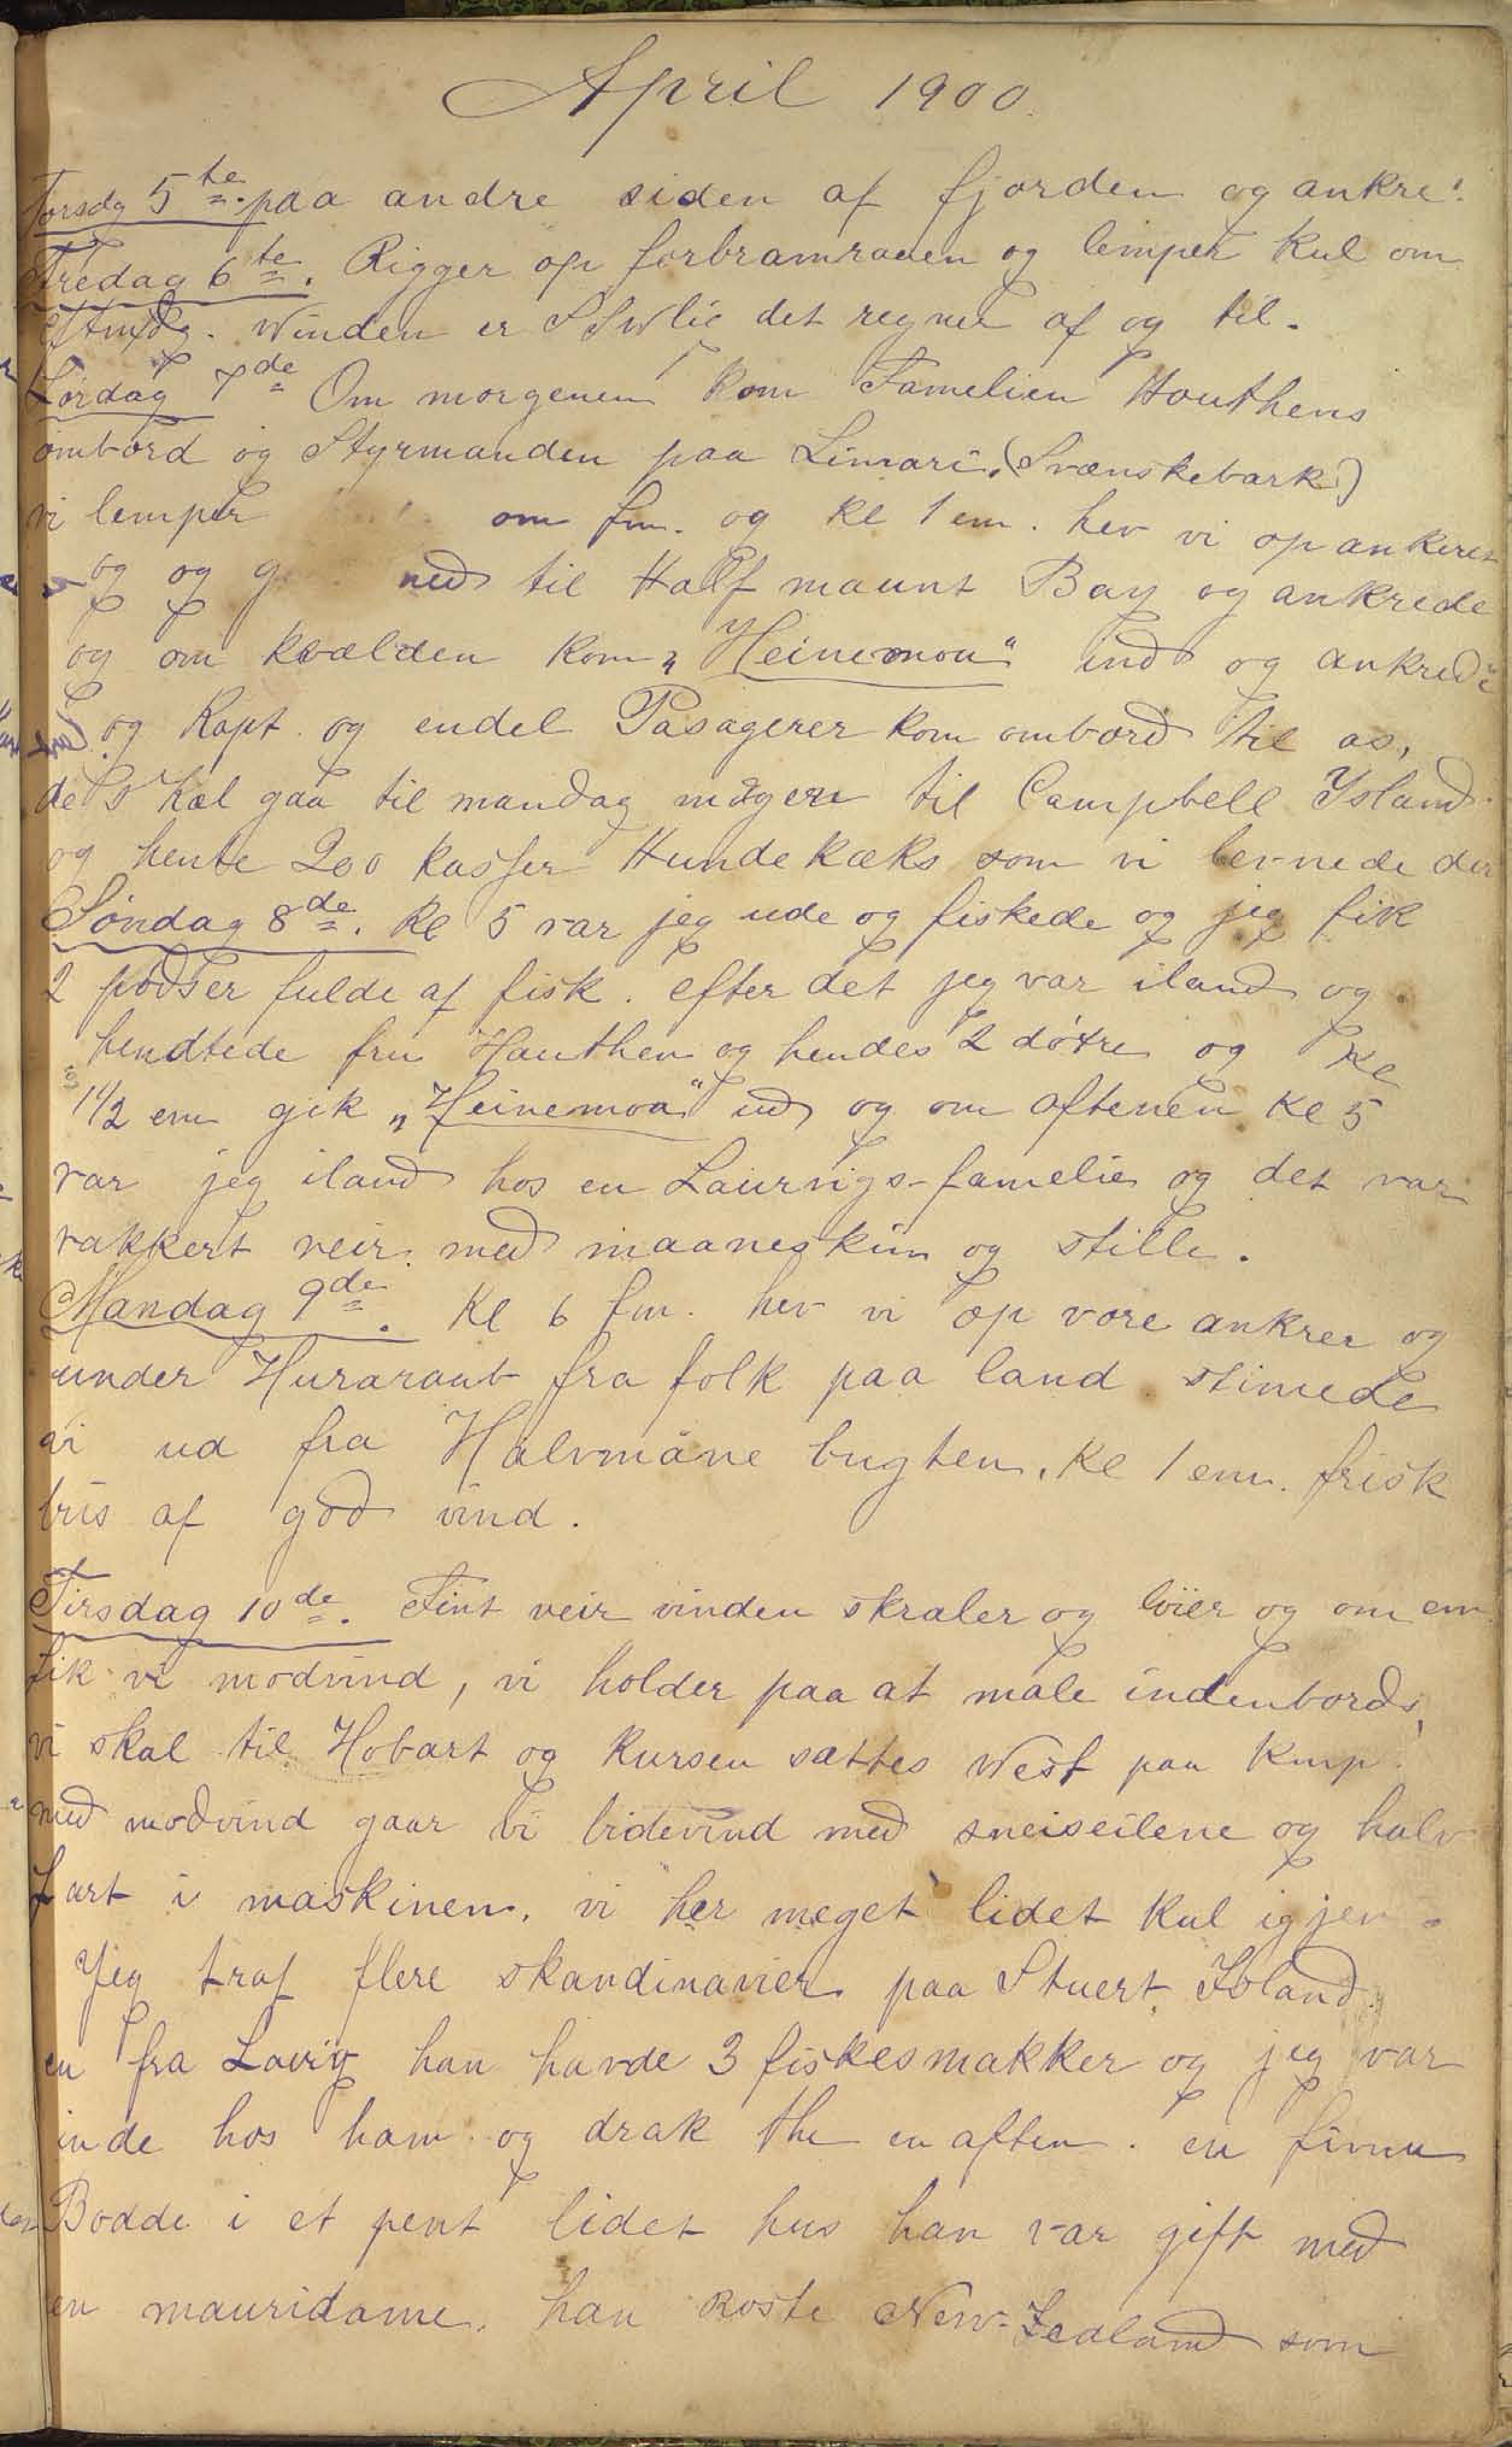 April 1900.
Torsdg 5te paa andre siden af fjorden og ankre.
Fredag 6te. Rigger op forbramraaen og lemper kul om
Eftmdg. Winden er SSWlic det regner af og til.
Lørdag 7de Om morgenen kom Famelien Houthens
ombord og Styrmanden paa Limari. (Svænskebark)
vi lemper om fm. og kl 1 em. hev vi op ankeret
og og g ned til Half maunt Bay og ankrede
og om kvælden kom „Heinemoa“ ind og ankrede
og Kapt. og endel Pasagerer kom ombord til os,
de skal gaa til mandag mågen til Campbell Island.
og hente 200 kasser Hundekæks som vi levnede der
Søndag 8de. Kl 5 var jeg ude og fiskede og jeg fik
2 pødser fulde af fisk. efter det jeg var iland og
hendtede fru Hauthen og hendes 2 døtre og Kl
1 1/2 em gik „Heinemoa“ ud og om aftenen Kl 5
var jeg iland hos en Laurvigs-famelie og det var
vakkert veir med maaneskin og stille.
Mandag 9de. Kl 6 fm. hev vi op vore ankrer og
under Huraraab fra folk paa land stimede
vi ud fra Halvmåne bugten. Kl 1 em. frisk
bris af god vind.
Tirsdag 10de. Fint veir vinden skraler og løier og om em
fik vi modvind, vi holder paa at male indenbords,
vi skal til Hobart og Kursen sættes West paa Kmp.
med modvind gaar vi bidevind med sneiseilene og halv
fart i maskinen. vi her meget lidet kul igjen.
Jeg traf flere skandinavier paa Stuert Island.
en fra Laurv han havde 3 fiskesmakker og jeg var
inde hos ham og drak the en aften. en finne
Bodde i et pent lidet hus han var gift med
en mauridame. han roste New-Zealand som